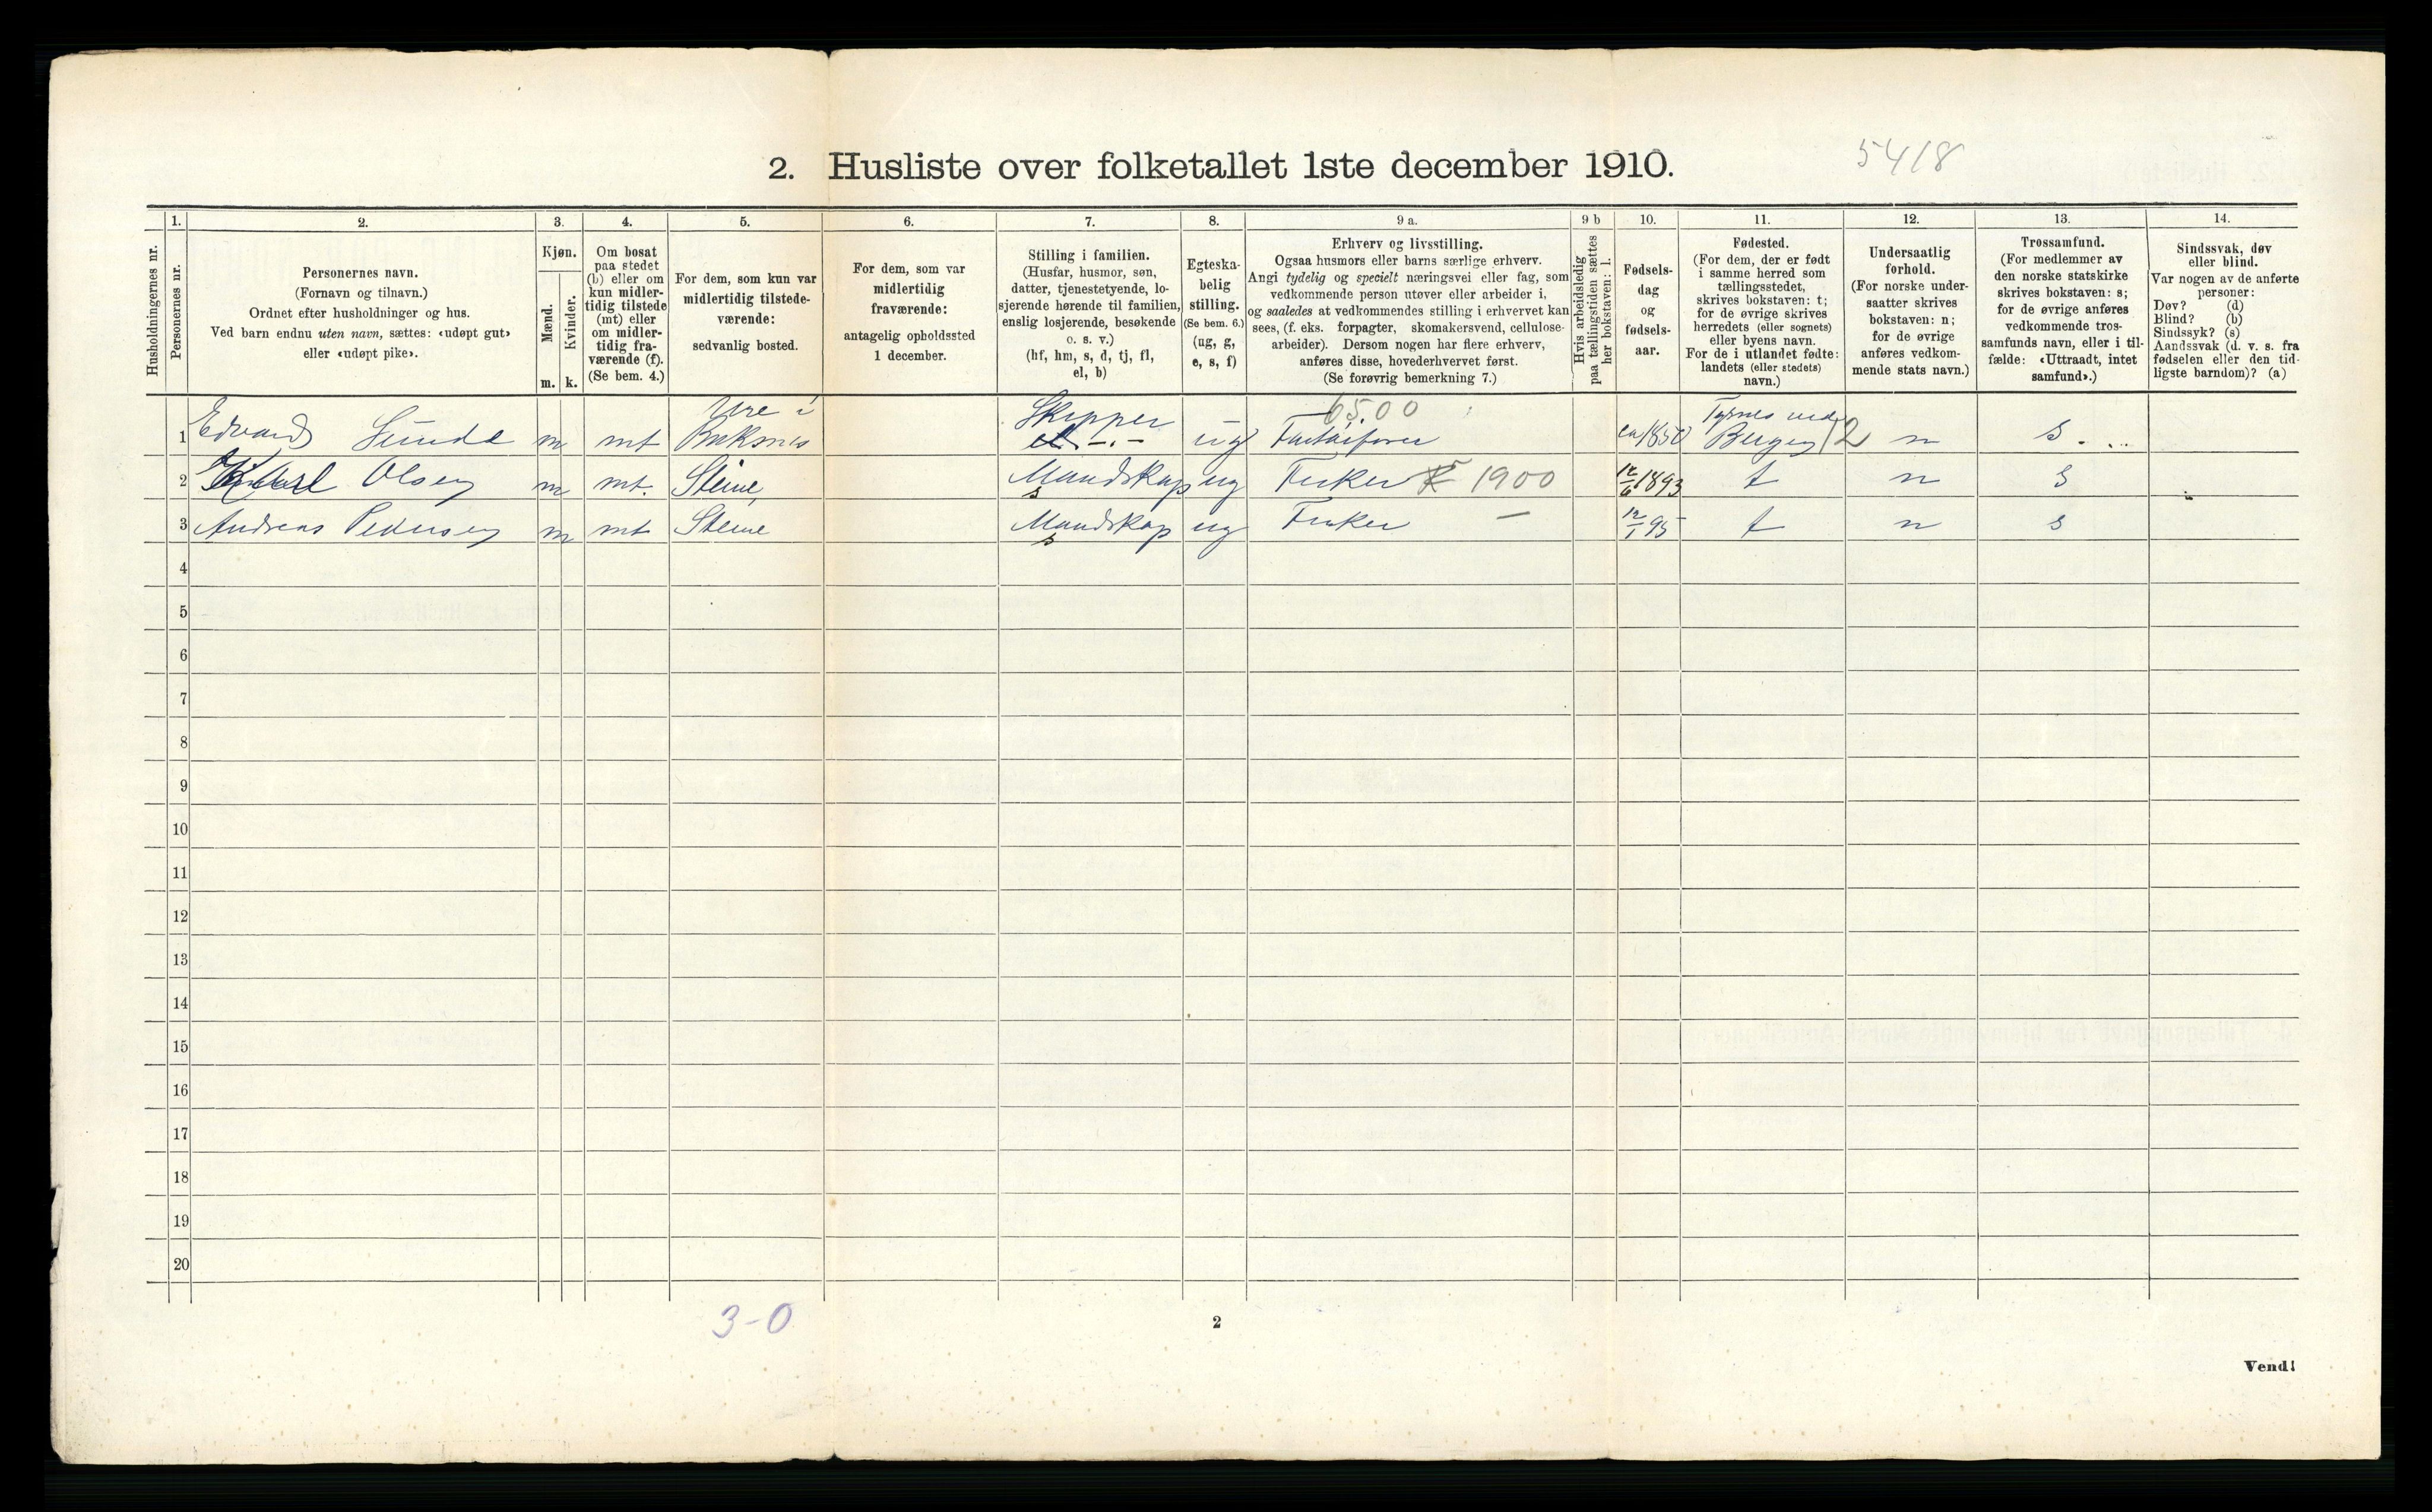 2. Husliste over folketallet 1ste december 1910.
5418
Husholdningernes nr.
1.
Personernes nr.
2.
Personernes navn.
(Fornavn og tilnavn.)
Ordnet efter husholdninger og hus.
Ved barn endnu uten navn, sættes: «udøpt gut»
eller «udøpt pike».
3.
Kjøn.
Mænd.
Kvinder.
m. k.
4.
Om bosat
paa stedet
(b) eller om
kun midler-
tidig tilstede
(mt) eller
om midler-
tidig fra-
værende (f).
(Se bem. 4.)
5.
For dem, som kun var
midlertidig tilstede-
værende:
sedvanlig bosted.
6.
For dem, som var
midlertidig
fraværende:
antagelig opholdssted
1 december.
7.
Stilling i familien.
(Husfar, husmor, søn,
datter, tjenestetyende, lo-
sjerende hørende til familien,
enslig losjerende, besøkende
o. s. v.)
(hf, hm, s, d, tj, fl,
el, b)
8.
Egteska-
belig
stilling.
(Se bem. 6.)
(ug, g,
e, s, f)
9 a.
Erhverv og livsstilling.
Ogsaa husmors eller barns særlige erhverv.
Angi tydelig og specielt næringsvei eller fag, som
vedkommende person utøver eller arbeider i,
og saaledes at vedkommendes stilling i erhvervet kan
sees, (f. eks. forpagter, skomakersvend, cellulose-
arbeider). Dersom nogen har flere erhverv,
anføres disse, hovederhvervet først.
(Se forøvrig bemerkning 7.)
9 b
Hvis arbeidsledig
paa tællingstiden sættes
her bokstaven: l.
10.
Fødsels-
dag
og
fødsels-
aar.
11.
Fødested.
(For dem, der er født
i samme herred som
tællingsstedet,
skrives bokstaven: t;
for de øvrige skrives
herredets (eller sognets)
eller byens navn.
For de i utlandet fødte:
landets (eller stedets)
navn.)
12.
Undersaatlig
forhold.
(For norske under-
saatter skrives
bokstaven: n;
for de øvrige
anføres vedkom-
mende stats navn.)
13.
Trossamfund.
(For medlemmer av
den norske statskirke
skrives bokstaven: s;
for de øvrige anføres
vedkommende tros-
samfunds navn, eller i til-
fælde: «Uttraadt, intet
samfund».)
14.
Sindssvak, døv
eller blind.
Var nogen av de anførte
personer:
Døv? (d)
Blind? (b)
Sindssyk? (s)
Aandssvak (d. v. s. fra
fødselen eller den tid-
ligste barndom)? (a)
Ure i Skipper 6500
1 Edvard Sunde m mt Buksnes ug ca 1850 Bergen 12 n s.
2 Karl Olsen m mt. Steine, Mandskap s ug Fisker 1900 12/6 1893 t n s
3 Andreas Pedersen m mt Steine Mandskap s ug Fisker — 12/1 95 t n s
4
5
6
7
8
9
10
11
12
13
14
15
16
17
18
19
20
3-0
2
Vend!